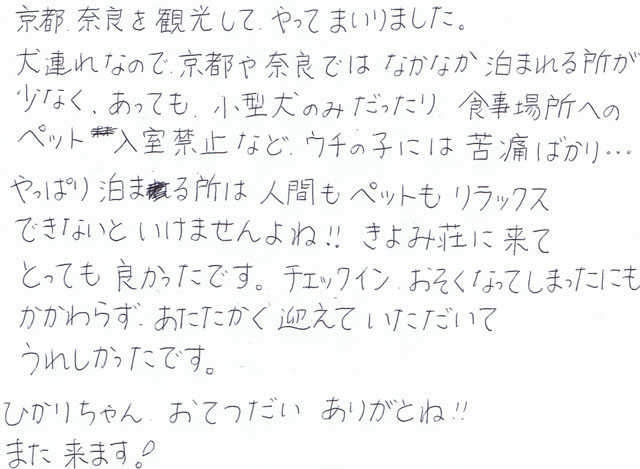 京都、奈良を観光して、やってまいりました。
犬連れなので、京都や奈良では なかなか 泊まれる所が
少なく、あっても、小型犬のみだったり 食事場所への
ペット 入室禁止など、ウチの子には 苦痛ばかり…
やっぱり 泊まる所は 人間も ペットも リラックス
できないと いけませんよね!! きよみ荘に 来て
とっても 良かったです。 チェックイン おそくなってしまったにも
かかわらず、あたたかく 迎えて いただいて
うれしかったです。
ひかりちゃん おてつだい ありがとね!!
また 来ます!